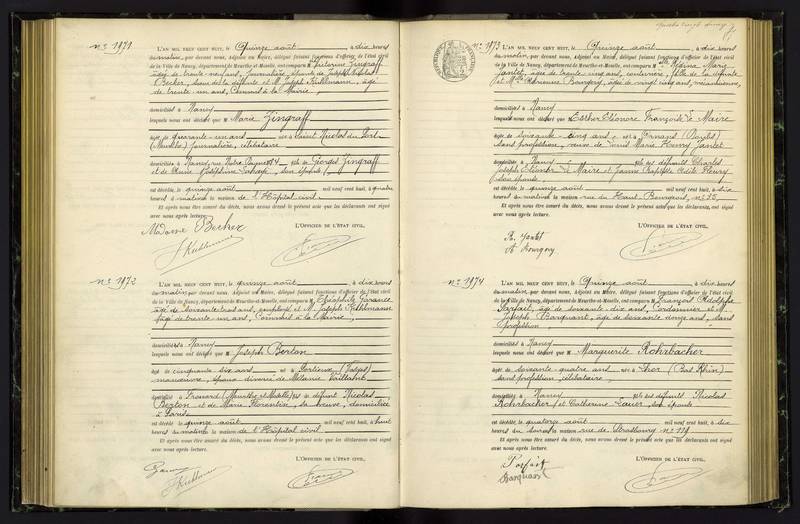 n° 1971
L'AN MIL NEUF CENT HUIT, le Quinze août, à dix heures
du matin, par devant nous, Adjoint au Maire, délégué faisant fonctions d'officier de l'état civil
de la Ville de Nancy, département de Meurthe-et-Moselle, ont comparu M Victorine Zingraff
âgée de trente-neuf ans, journalière, épouse de Joseph Nicolas
Becker, sœur de la défunte et M. Joseph Kuhlmann, âgé
de trente-un ans, Commis à la Mairie,
domiciliés à Nancy
lesquels nous ont déclaré que M Marie Zingraff
âgée de quarante-un ans née à Saint Nicolas du Port
(Meurthe) journalière, célibataire
domiciliée à Nancy, rue fille de Georges Zingraff
et de Anne Joséphine son épouse,
est décédée, le quinze août mil neuf cent huit, à quatre
heures du matin en la maison de l'Hôpital civil
Et après nous être assuré du décès, nous avons dressé le présent acte que les déclarants ont signé
avec nous après lecture.
Madame Becker
J Kuhlmann
L'OFFICIER DE L'ÉTAT CIVIL,
n° 1972
L'AN MIL NEUF CENT HUIT, le quinze août, à dix heures
du matin, par devant nous, Adjoint au Maire, délégué faisant fonctions d'officier de l'état civil
de la Ville de Nancy, département de Meurthe-et-Moselle, ont comparu M Théophile
âgé de soixante-trois ans, employé et M. Joseph Kuhlmann
âgé de trente-un ans, Commis à la Mairie,
domiciliés à Nancy
lesquels nous ont déclaré que M Joseph Berton
âgé de cinquante-six ans né à Portieux (Vosges)
manœuvre, époux divorcé de Mélanie Vaillant
domicilié à Frouard (Meurthe et Moselle) fils de défunt Nicolas
Berton et de Marie Florentin, sa veuve, domiciliée
à Paris
est décédé, le quinze août mil neuf cent huit, à huit
heures du matin en la maison de l'Hôpital civil
Et après nous être assuré du décès, nous avons dressé le présent acte que les déclarants ont signé
avec nous après lecture.
J Kuhlmann
L'OFFICIER DE L'ÉTAT CIVIL,
n° 1973
L'AN MIL NEUF CENT HUIT, le Quinze août, à dix heures
du matin, par devant nous, Adjoint au Maire, délégué faisant fonctions d'officier de l'état civil
de la Ville de Nancy, département de Meurthe-et-Moselle, ont comparu Marie
Jantet, âgée de trente-cinq ans, couturière, fille de la défunte
et Melle Adrienne Bourgory, âgée de vingt-cinq ans, mécanicienne,
domiciliés à Nancy
lesquels nous ont déclaré que M Esther Eléonore Françoise Le Maire
âgée de soixante-cinq ans née à Ornans (Doubs)
sans profession, veuve de Louis Marie Henry Jantet
domiciliée à Nancy fille des défunts Charles
Joseph Eléonor Le Maire et Jeanne Fleury
son épouse
est décédée, le quinze août mil neuf cent huit, à six
heures du matin en la maison rue du Haut-Bourgeois, n° 75,
Et après nous être assuré du décès, nous avons dressé le présent acte que les déclarants ont signé
avec nous après lecture.
R. Jantet
A Bourgory
L'OFFICIER DE L'ÉTAT CIVIL,
n° 1974
L'AN MIL NEUF CENT HUIT, le Quinze août, à dix heures
du matin, par devant nous, Adjoint au Maire, délégué faisant fonctions d'officier de l'état civil
de la Ville de Nancy, département de Meurthe-et-Moselle, ont comparu M François Adolphe
Parfait, âgé de soixante-dix ans, Cordonnier et M.
Joseph Barquant, âgé de soixante douze ans, sans
profession
domiciliés à Nancy
lesquels nous ont déclaré que M Marguerite Rohrbacher
âgée de soixante-quatre ans née à Thor (Bas Rhin)
sans profession, célibataire,
domiciliée à Nancy fille des défunts Nicolas
Rohrbacher et Catherine Lauer, son épouse
est décédée, le quatorze août mil neuf cent huit, à dix
heures du soir en la maison rue de Strasbourg n°
Et après nous être assuré du décès, nous avons dressé le présent acte que les déclarants ont signé
avec nous après lecture.
Parfait
Barquant
L'OFFICIER DE L'ÉTAT CIVIL,